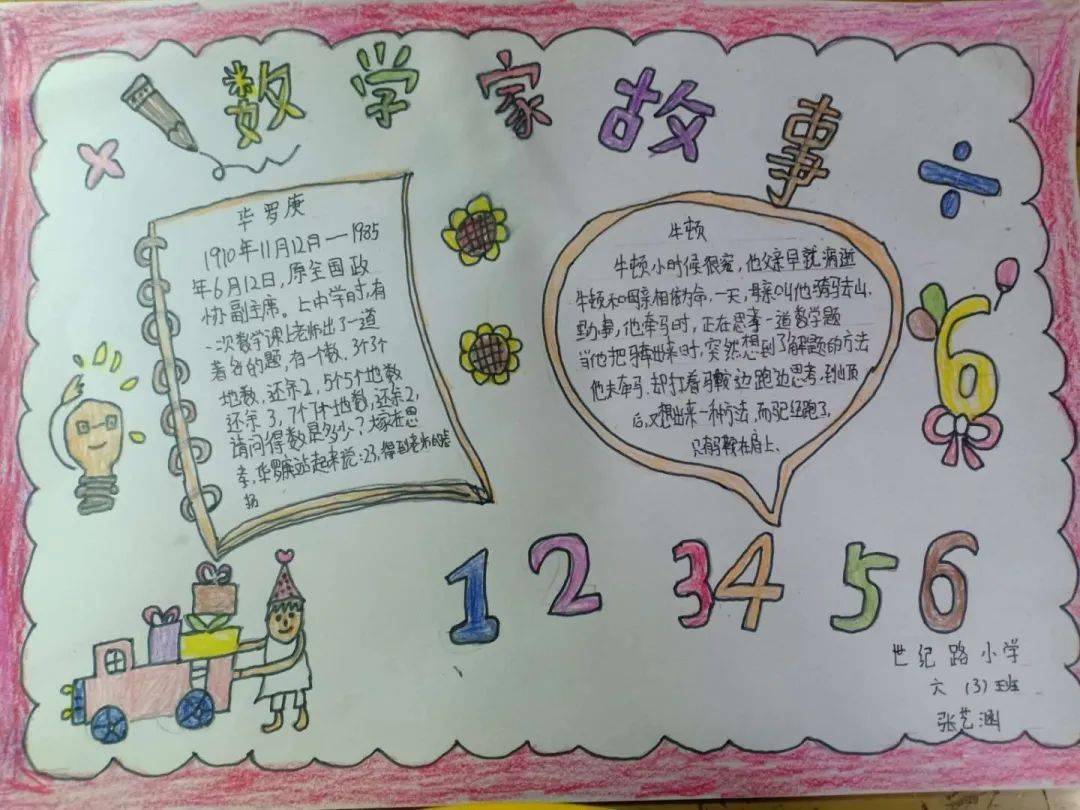 数学家故事
华罗庚
1910年11月12月—1985
年6月12日，原全国政
协副主席。上中学时，有
一次数学课上老师出了一道
著名的题，有一个数，3个3个
地数，还余2，5个5个地数
还余3，7个7个地数，还余2，
请问得数是多少？大家在思
考，华罗庚站起来说：23，得到老师的表
扬
牛顿
牛顿小时候很穷，他父亲早就消逝
牛顿和母亲相依为命，一天，母亲叫他骑马去山
里办事，他牵马时，正在思考一道数学题
当他把马牵出来时，突然想到了解题的方法
他未牵马，却打着马鞍边跑边思考，到山顶
后，又想出来一种方法，而马已经跑了，
只有马鞍在肩上、
6
1 2 3 4 5 6
世纪路小学
六（3）班
张艺涵